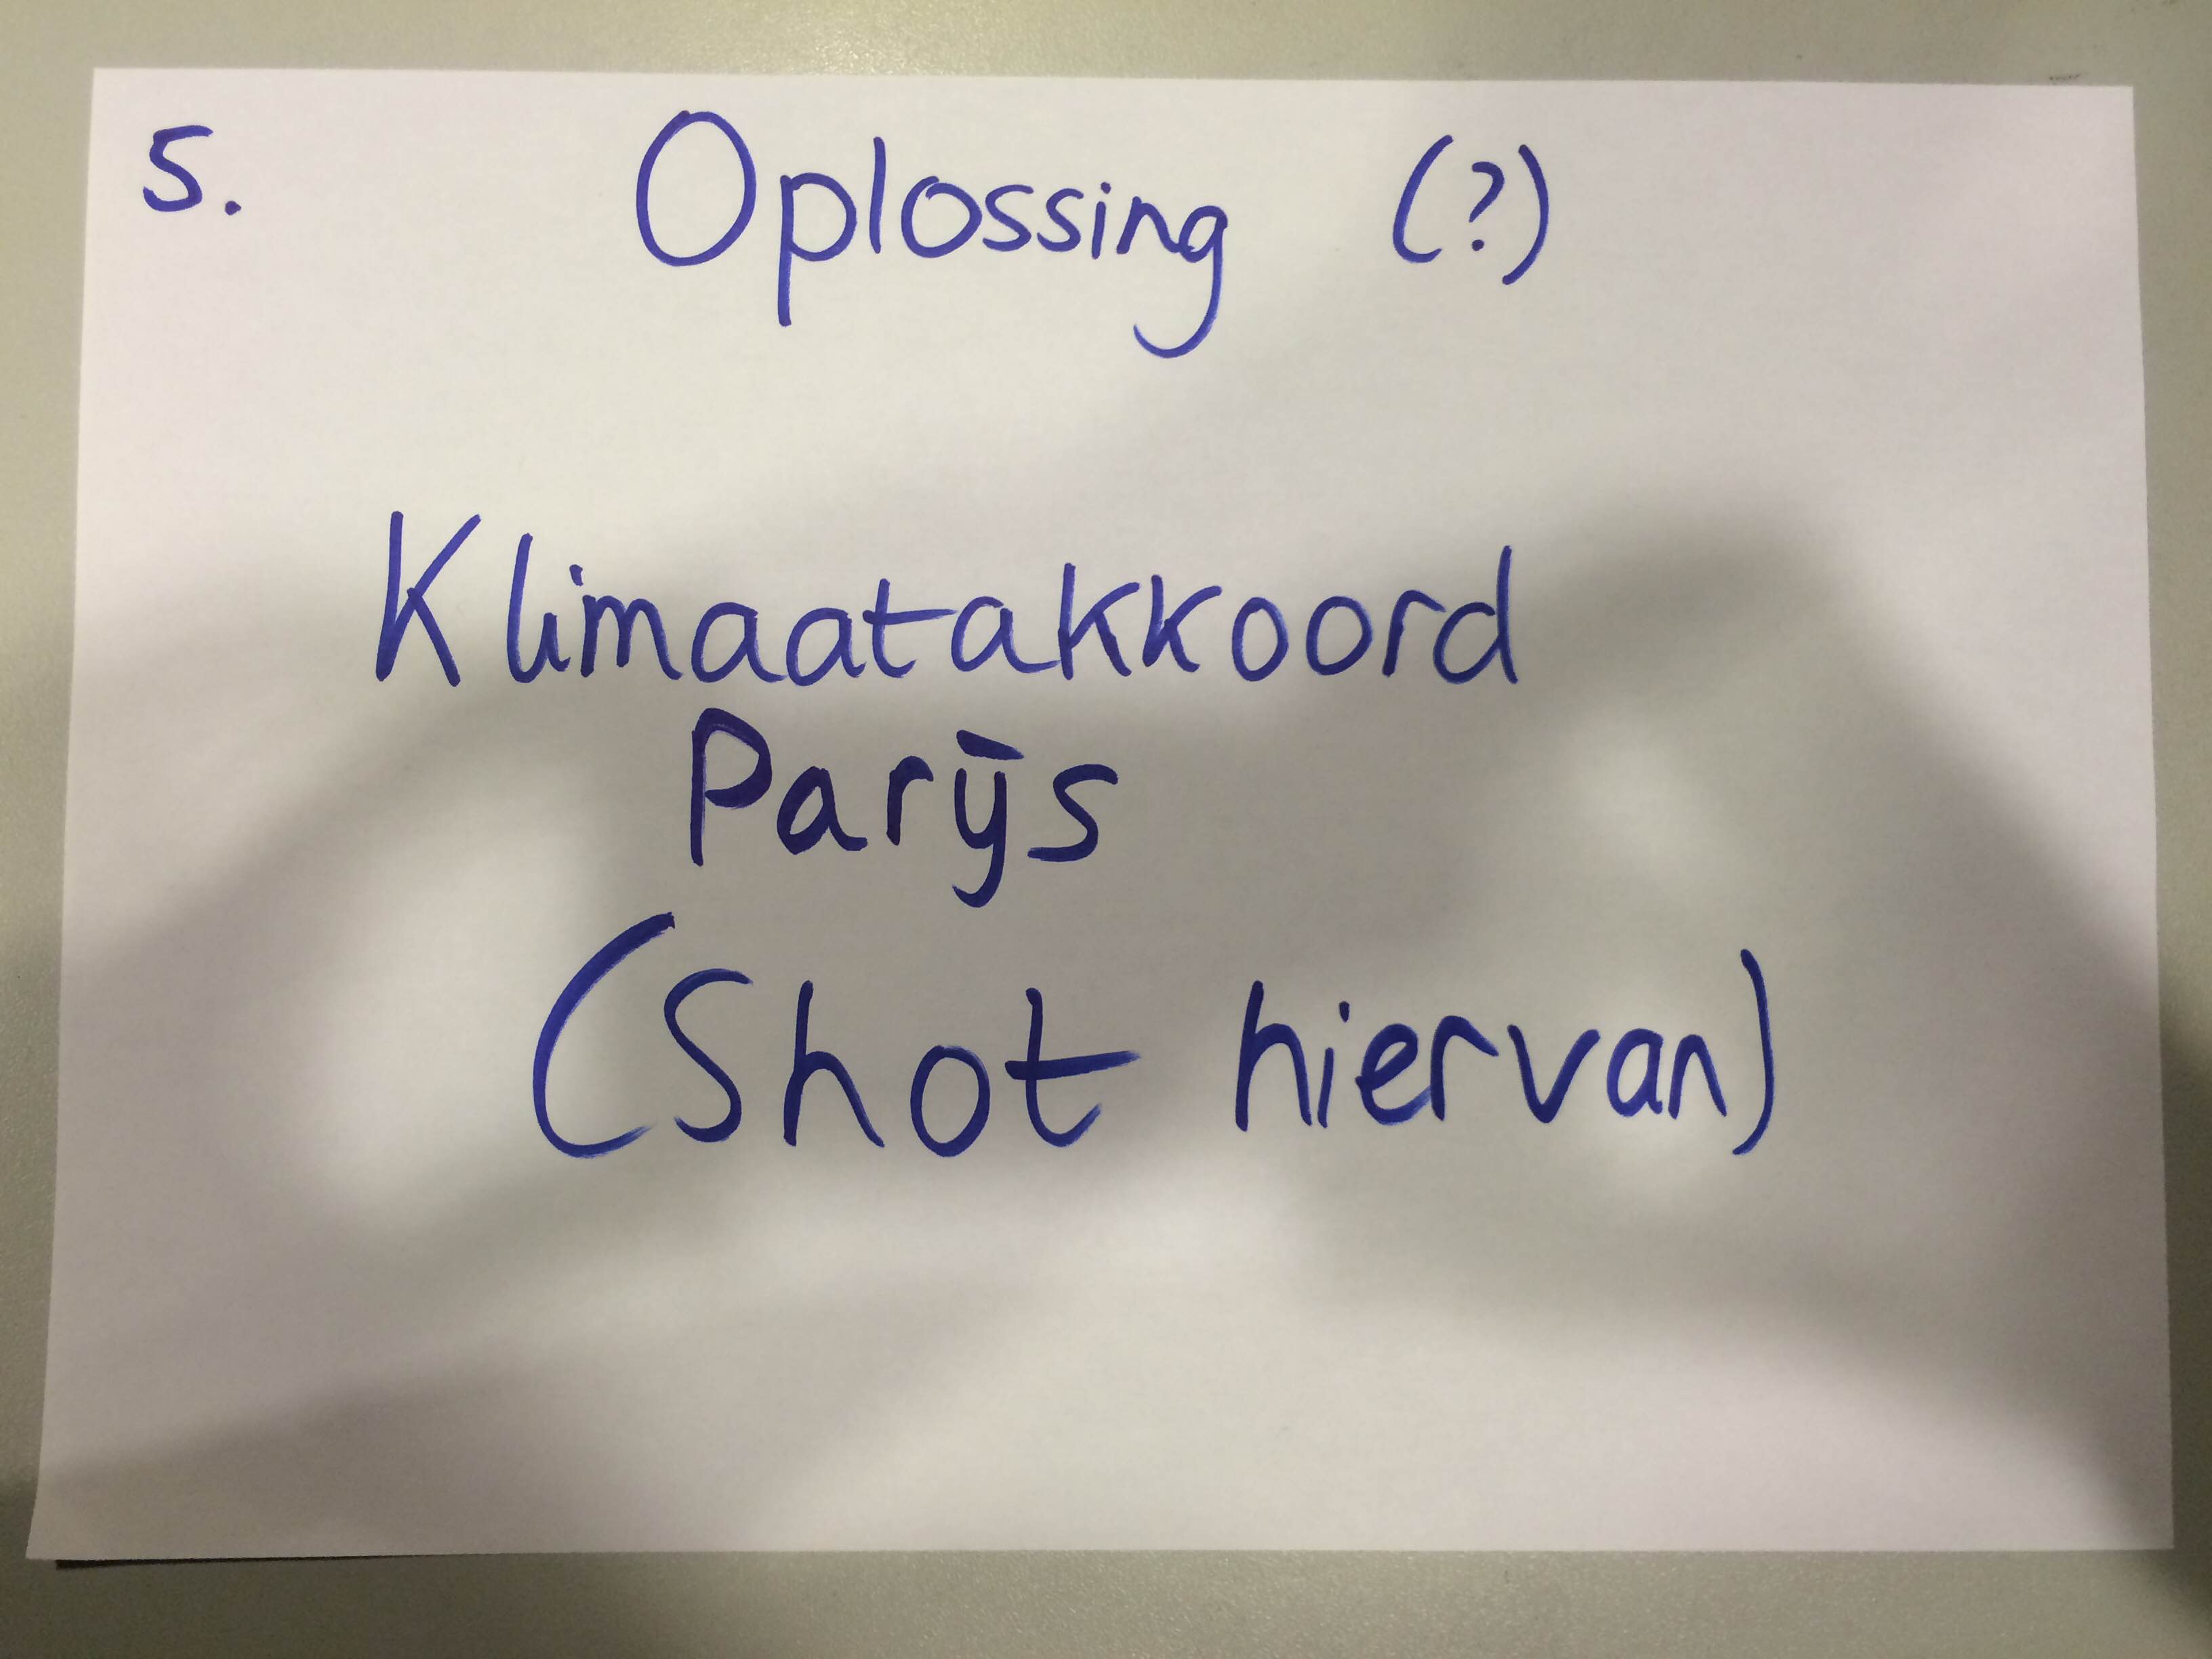 5.
Oplossing (?)
Klimaatakkoord
Parijs
(Shot hiervan)